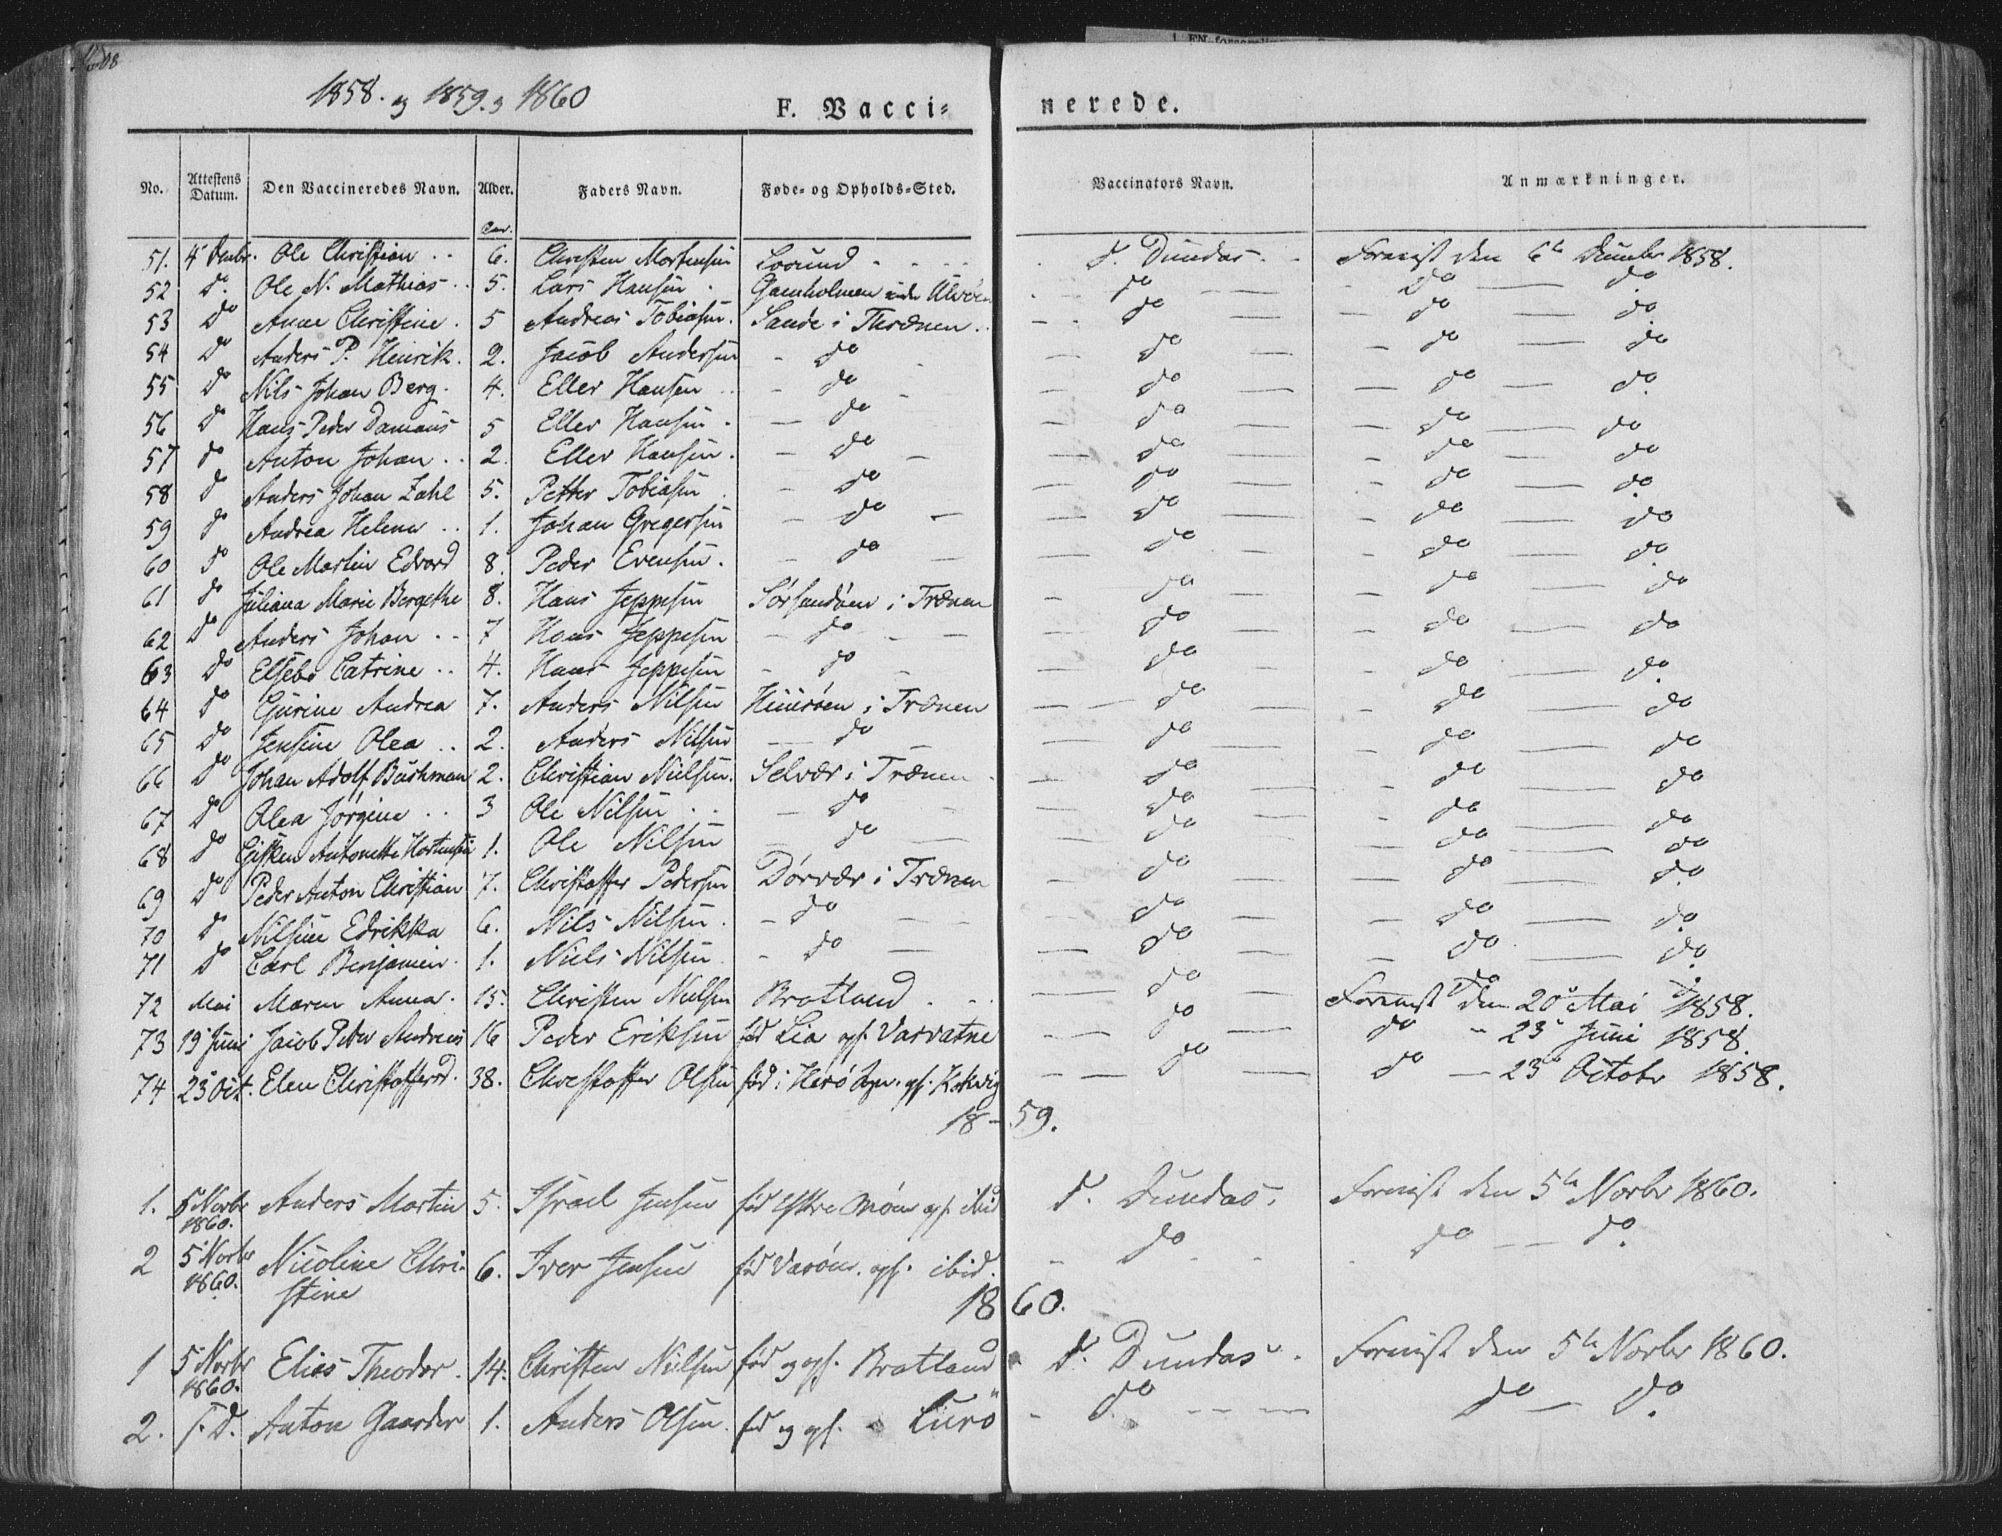 1858. og 1859. og 1860
F. Vacci=nerede.
No. Attestens Datum. Den Vaccineredes Navn. Alder. Faders Navn. Føde- og Opholds-Sted. Vaccinators Navn. Anmærkninger.
51. 4 Decbr. Ole Christian 6. Christen Mortensen Lovund J. Dundas Foreviist den 6te Decembr 1858.
52 do. Ole N. Mathias 5. Lars Hansen Gamholmen under do do do
53 do Anne Christine 5 Andreas Tobiasen Sande i Thrænen do do do
54 do Anders P. Henrik 2. Jacob Andersen do do do do
55 do Nils Johan Berg 4. Eller Hansen do do do do
56 do Hans Peder Damaus 5 Eller Hansen do do do do
57 do Anton Johan 2. Eller Hansen do do do do
58 do Anders Johan Zahl 5. Petter Tobiasen do do do do
59 do Andrea Helena 1. Johan Gregersen do do do do
60 do Ole Martin Edvard 8. Peder Evensen do do do do
61 do Juliana Marie Bergethe 8. Hans Jeppesen Sørsandøen i Trænen do do do
62 do Anders Johan 7 Hans Jeppesen do do do do
63 do Elsebe Catrine 4. Hans Jeppesen do do do do
64 do Gurine Andrea 7. Anders Nilsen Huusøen i Trænen do do do
65 do Jensine Olea 2. Anders Nilsen do do do do
66 do Johan Adolf Buchman 2. Christian Nielsen Selvær i Trænen do do do
67 do Olea Jørgine 3 Ole Nilsen do do do do
68 do Gisken Antonette Hortensia 1. Ole Nilsen do do do do
69 do Peder Anton Christian 7. Christoffer Pedersen Dørvær i Trænen do do do
70 do Nilsine Edrikka 6. Nils Nilsen do do do do
71 do Carl Benjamin 1. Niels Nilsen do do do do
72 Mai Maren Anna 15. Christen Nielsen Bratland do Foreviist den 20 Mai 1858.
73 19 Juni Jacob Peter Andreas 16 Peder Eriksen fød Lia ops. Varvatne do do 23 Juni 1858
74 23 Oct. Elen Christoffersd. 38. Christoffer Olsen fød i Herø ops. Kokvig do do 23 Octobr 1858.
1859.
1. 5 Novbr 1860. Anders Martin 5. Israel Jensen fød ops. ibid J. Dundas. Foreviist den 5te Novbr 1860.
2 5 Novbr 1860. Nicoline Chri-
stine 6. Iver Jensen fød Varøen. ops. ibid. do do do
1860.
1 5 Novbr 1860. Elias Theodor 14. Christen Nielsen fød og ops. Bratland J. Dundas Foreviist den 5te Novbr 1860.
2. s. D. Anton Gaarder 1. Anders Olsen fød og ops. Lurö do do do